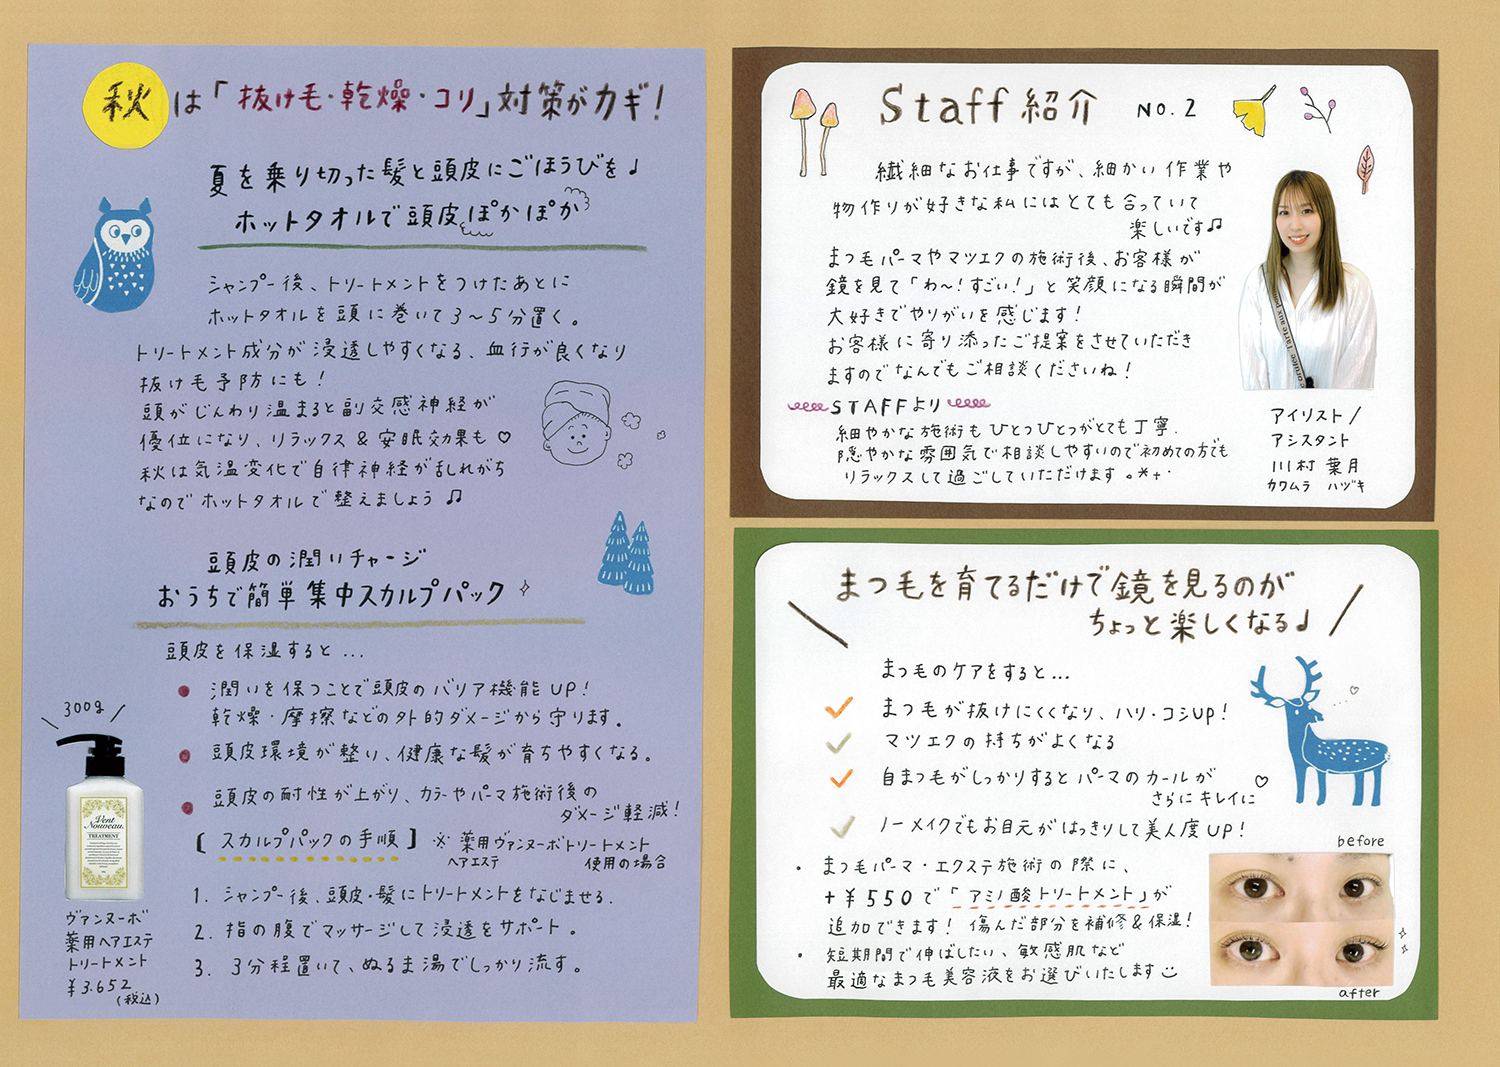 秋は「抜け毛・乾燥・コリ」対策がカギ！
夏を乗り切った髪と頭皮にごほうびを♩
ホットタオルで頭皮ぽかぽか
シャンプー後、トリートメントをつけたあとに
ホットタオルを頭に巻いて3〜5分置く。
トリートメント成分が浸透しやすくなる、血行が良くなり
抜け毛予防にも！
頭がじんわり温まると副交感神経が
優位になり、リラックス＆安眠効果も♡
秋は気温変化で自律神経が乱れがち
なのでホットタオルで整えましょう♫
頭皮の潤いチャージ
おうちで簡単集中スカルプパック
頭皮を保湿すると…
潤いを保つことで頭皮のバリア機能UP！
乾燥・摩擦などの外的ダメージから守ります。
頭皮環境が整い、健康な髪が育ちやすくなる。
頭皮の耐性が上がり、カラーやパーマ施術後の
ダメージ軽減！
[ スカルプパックの手順 ] ※薬用ヴァンヌーボトリートメント
ヘアエステ 使用の場合
1. シャンプー後、頭皮・髪にトリートメントをなじませる.
2. 指の腹でマッサージして浸透をサポート。
3. 3分程置いて、ぬるま湯でしっかり流す。
\ 300g /
Vent
Nouveau.
TREATMENT
ヴァンヌーボ
薬用ヘアエステ
トリートメント
¥3.652
(税込)
Staff 紹介 NO.2
繊細なお仕事ですが、細かい作業や
物作りが好きな私にはとても合っていて
楽しいです♫
まつ毛パーマやマツエクの施術後、お客様が
鏡を見て「わ〜！すごい！」と笑顔になる瞬間が
大好きでやりがいを感じます！
お客様に寄り添ったご提案をさせていただき
ますのでなんでもご相談くださいね！
STAFFより
細やかな施術もひとつひとつがとても丁寧.
隠やかな雰囲気で相談しやすいので初めての方でも
リラックスして過ごしていただけます。*+·
アイリスト /
アシスタント
川村 葉月
カワムラ ハヅキ
まつ毛を育てるだけで鏡を見るのが
ちょっと楽しくなる♩
まつ毛のケアをすると…
まつ毛が抜けにくくなり、ハリ・コシUP！
マツエクの持ちがよくなる
自まつ毛がしっかりするとパーマのカールが
さらにキレイに♡
ノーメイクでもお目元がはっきりして美人度UP！
・まつ毛パーマ・エクステ施術の際に、
+¥550で「アミノ酸トリートメント」が
追加できます！傷んだ部分を補修＆保湿！
・短期間で伸ばしたい、敏感肌など
最適なまつ毛美容液をお選びいたします
before
after